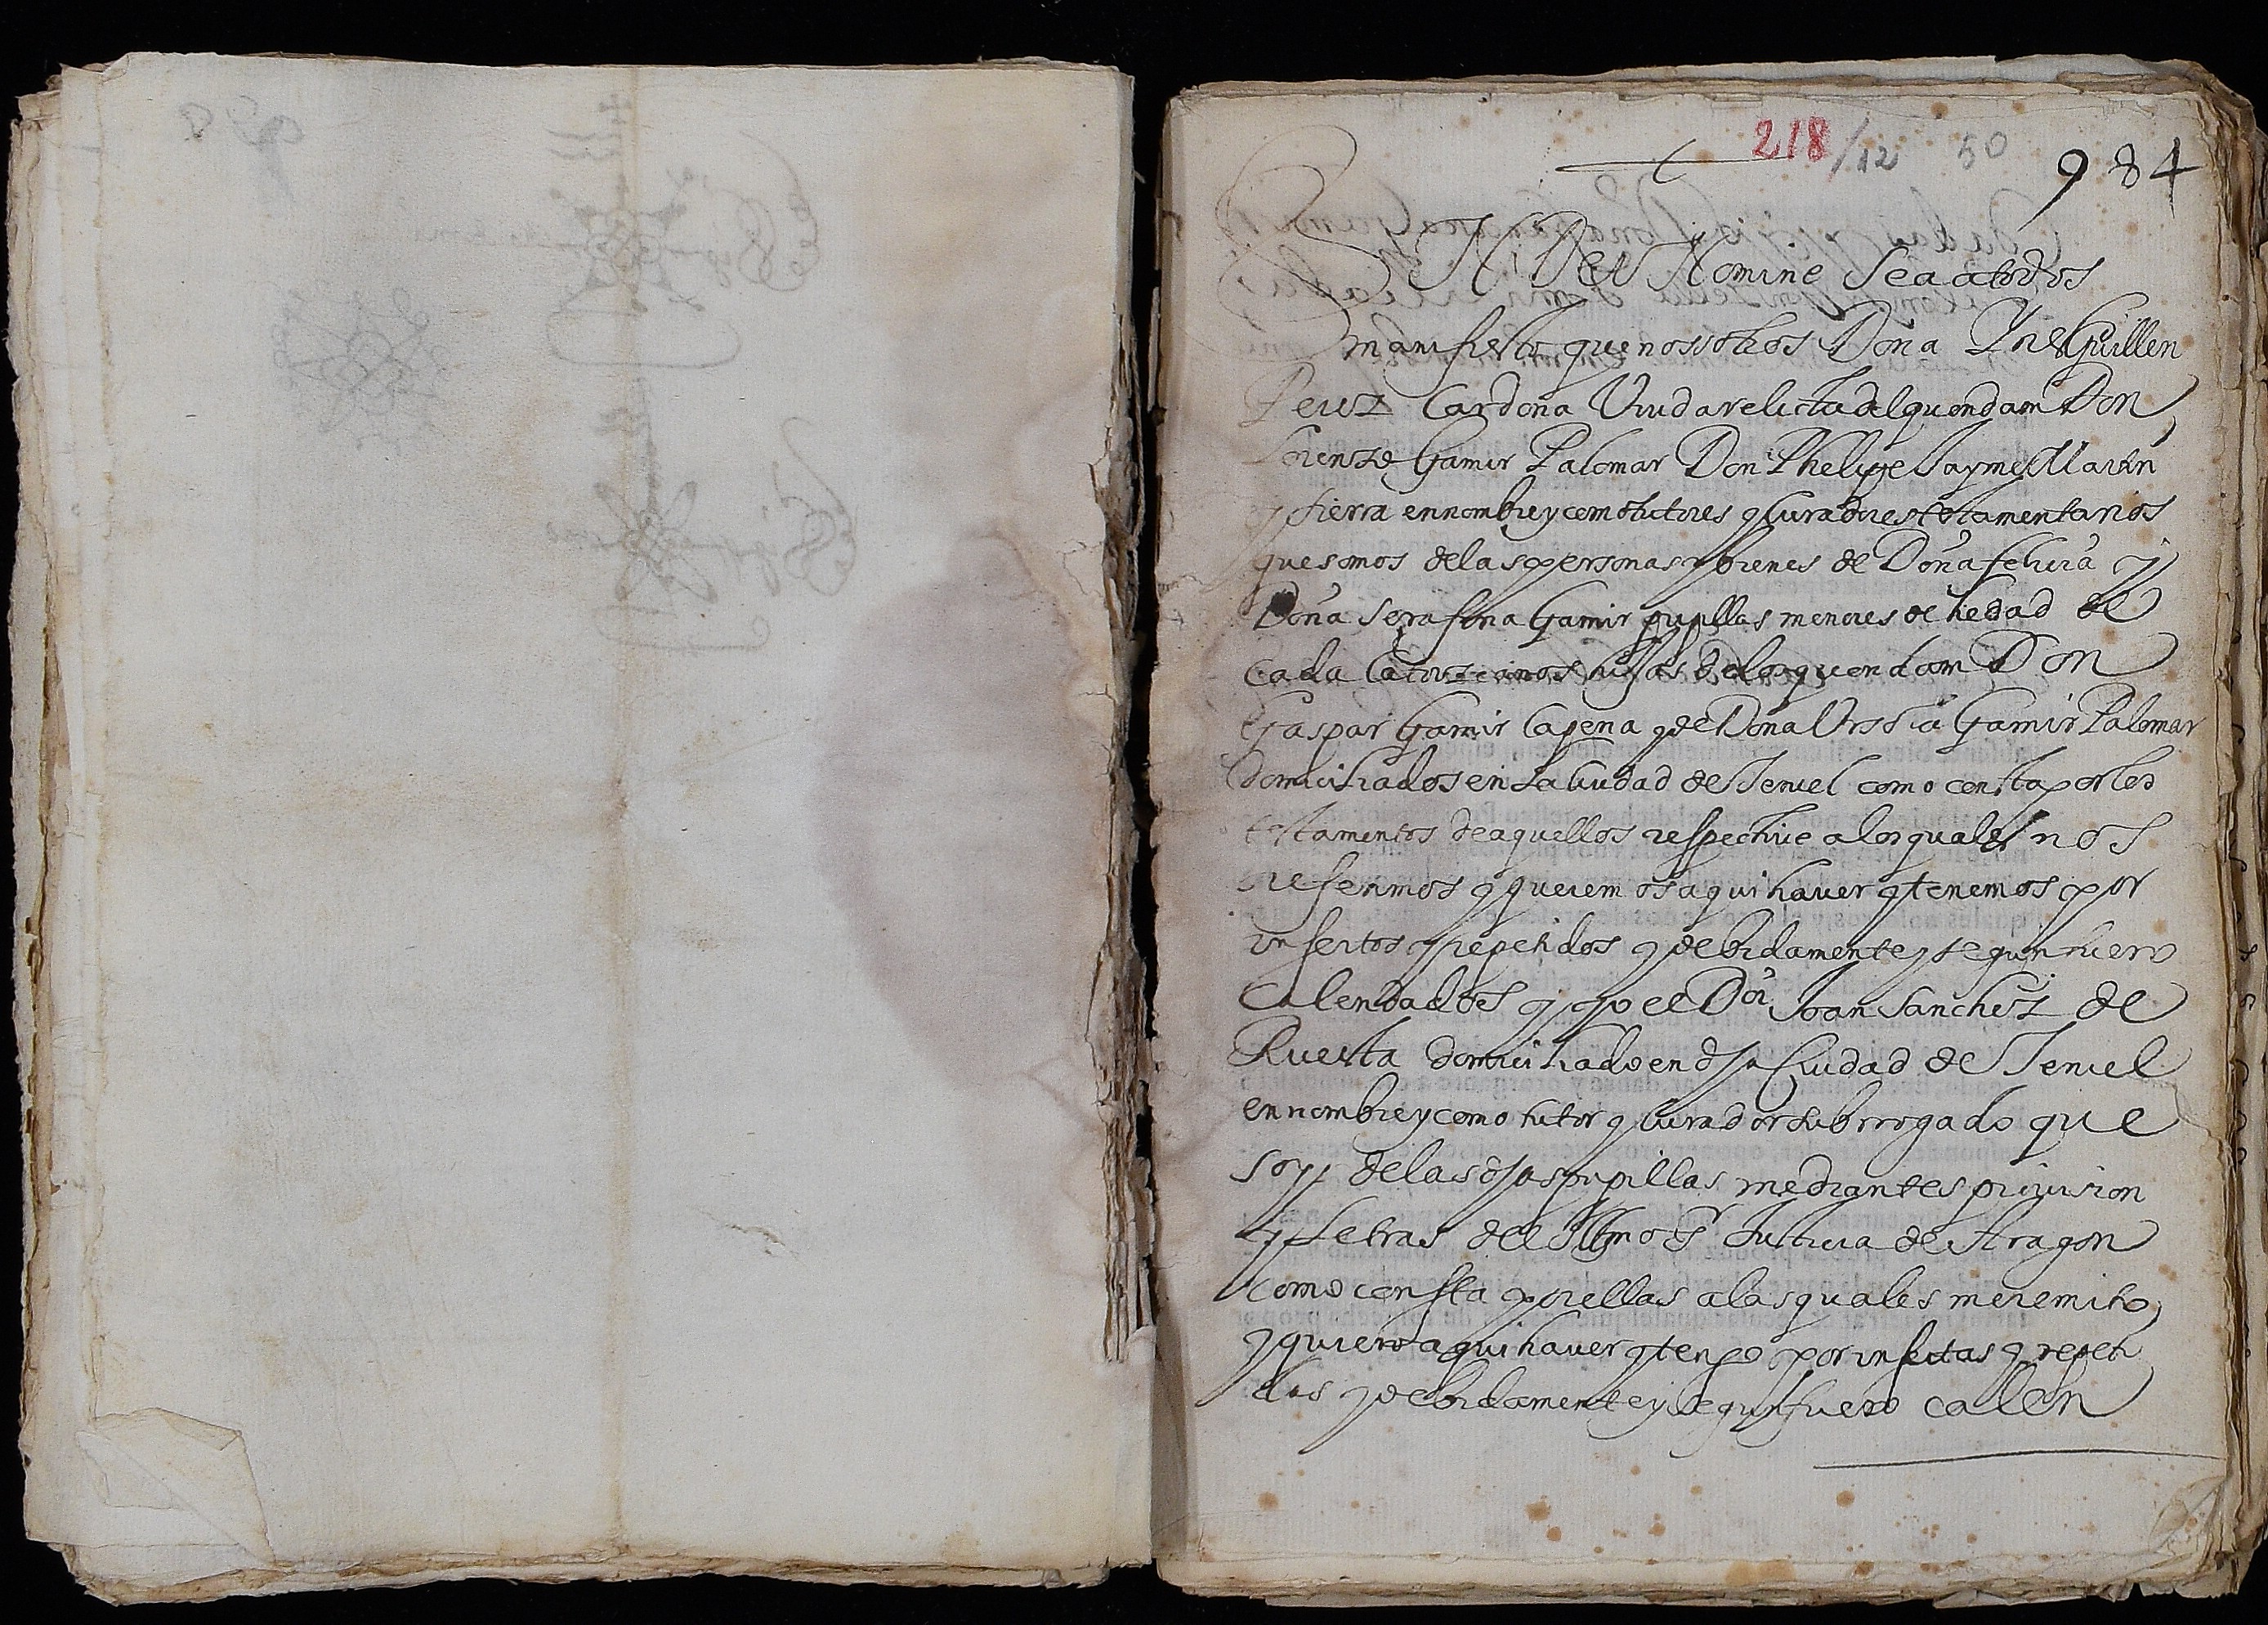 218/12 50
984
IN Dei Nomine Sea a todos
manifiesto que nosotros Dona Ines Guillen
Perez Cardona Viuda relicta del quondam Don
Lorenzo Gamir Palomar Don Phelipe Jayme Marin
y sierra en nombre y como tutores y curadores testamentarios
que somos de las personas y bienes de Doña feliçia y
Doña Serafina Gamir pupillas menores de hedad de
cada catorze anos hijas de los quondam Don
Gaspar Gamir Capena y de Dona Ursola Gamir Palomar
domiciliados en la ciudad de Teruel como consta por los
testamentos de aquellos respective a los quales nos
referimos y queremos aqui haver y tenemos por
insertos y repetidos y debidamente y segun fuero
Calendados y yo el Dor Joan Sanchez de
Ruesta domiciliado en dha Ciudad de Teruel
en nombre y como tutor y curador subrrogado que
soy de las dhas pupillas mediantes provision
y letras del Illmo Sr Justicia de Aragon
como consta por ellas a las quales me remito
y quiero aqui haver y tengo por insertas y repeti
das y debidamente y segun fuero calen